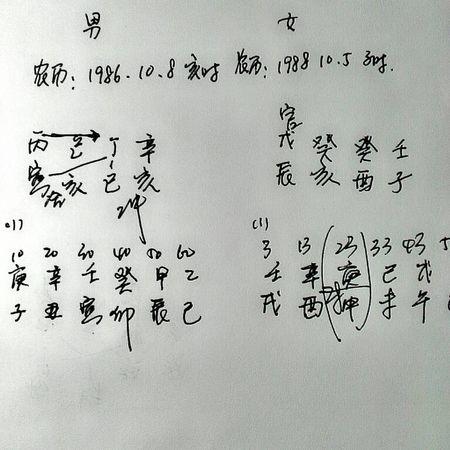 男 女
农历: 1986.10.8 亥时 农历: 1988 10.5 子时.
官
丙 己 丁 辛 戊 癸 癸 壬
寅 亥 巳 亥 辰 亥 酉 子
(1) (1)
10 20 30 40 50 60 3 13 23 33 43 5
庚 辛 壬 癸 甲 乙 壬 辛 庚 己 戊
子 丑 寅 卯 辰 巳 戌 酉 申 未 午